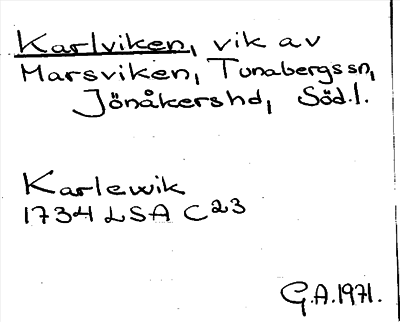 Karlviken, vik av
Marsviken, Tunabergssn,
Jönåkershd, Söd.l.
Karlewik
1734 LSA C23
G.A. 1971.